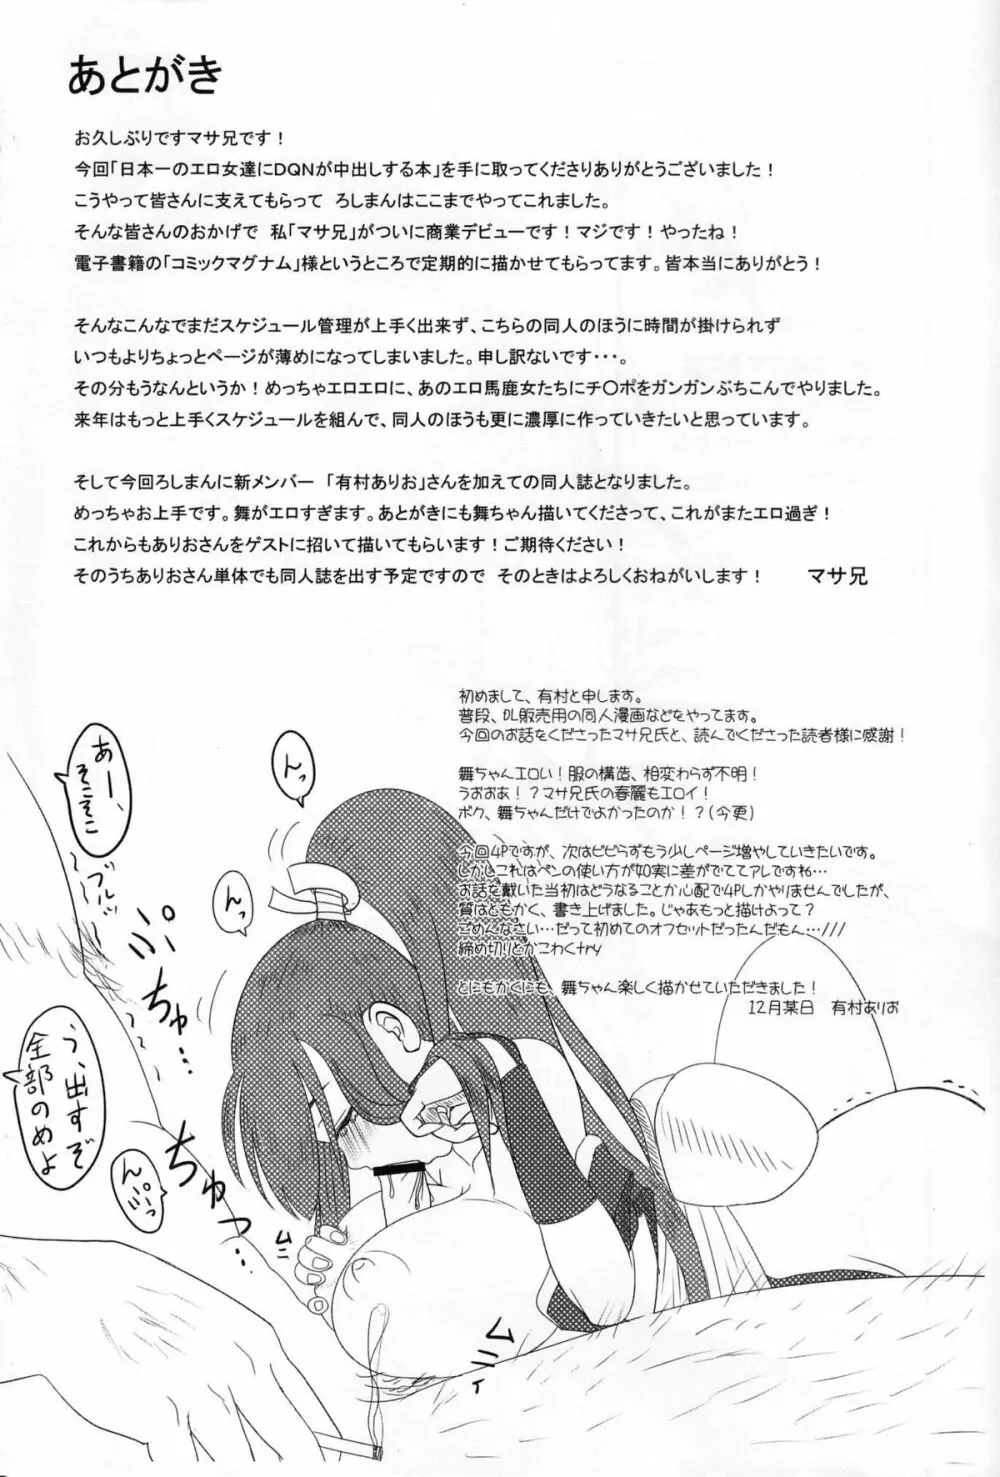 あとがき
お久しぶりですマサ兄です！
今回「日本一のエロ女達にDQNが中出しする本」を手に取ってくださりありがとうございました！
こうやって皆さんに支えてもらって　ろしまんはここまでやってこれました。
そんな皆さんのおかげで　私「マサ兄」がついに商業デビューです！マジです！やったね！
電子書籍の「コミックマグナム」様というところで定期的に描かせてもらってます。皆本当にありがとう！
そんなこんなでまだスケジュール管理が上手く出来ず、こちらの同人のほうに時間が掛けられず
いつもよりちょっとページが薄めになってしまいました。申し訳ないです・・・。
その分もうなんというか！めっちゃエロエロに、あのエロ馬鹿女たちにチ〇ポをガンガンぶちこんでやりました。
来年はもっと上手くスケジュールを組んで、同人のほうも更に濃厚に作っていきたいと思っています。
そして今回ろしまんに新メンバー　「有村ありお」さんを加えての同人誌となりました。
めっちゃお上手です。舞がエロすぎます。あとがきにも舞ちゃん描いてくださって、これがまたエロ過ぎ！
これからもありおさんをゲストに招いて描いてもらいます！ご期待ください！
そのうちありおさん単体でも同人誌を出す予定ですので　そのときはよろしくおねがいします！　　マサ兄
初めまして、有村と申します。
普段、DL販売用の同人漫画などをやってます。
今回のお話をくださったマサ兄氏と、読んでくださった読者様に感謝！
舞ちゃんエロい！服の構造、相変わらず不明！
うおおあ！？マサ兄氏の春麗もエロイ！
ボク、舞ちゃんだけでよかったのか！？（今更）
今回4Pですが、次はビビらずもう少しページ増やしていきたいです。
しかしこれはペンの使い方が如実に差がでててアレですね…
お話を戴いた当初はどうなることか心配で4Pしかやりませんでしたが、
質はともかく、書き上げました。じゃあもっと描けよって？
ごめんなさい…だって初めてのオフセットだったんだもん…///
締め切りとかこわくtry
とにもかくにも、舞ちゃん楽しく描かせていただきました！
12月某日　有村ありお
あー、
そこそこ
ブルッ
んっ
んっ
ぷぷ
ちゅ…
う、出すぞ
全部のめよ
ん
っ
ちゅっ…
ムニ
ムニィ